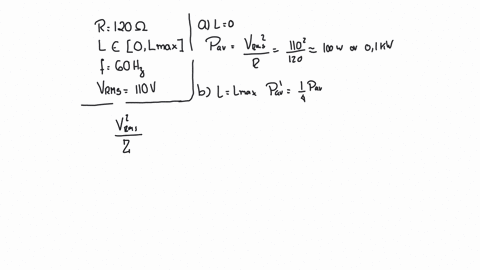 R = 120 Ω
L ∈ [0, Lmax]
f = 60 Hz
VRMS = 110V
a) L=0
Pav = VRMS²/R = 110²/120 ≈ 100 W or 0,1 KW
b) L = Lmax Pav' = 1/4 Pav
VRMS²/Z